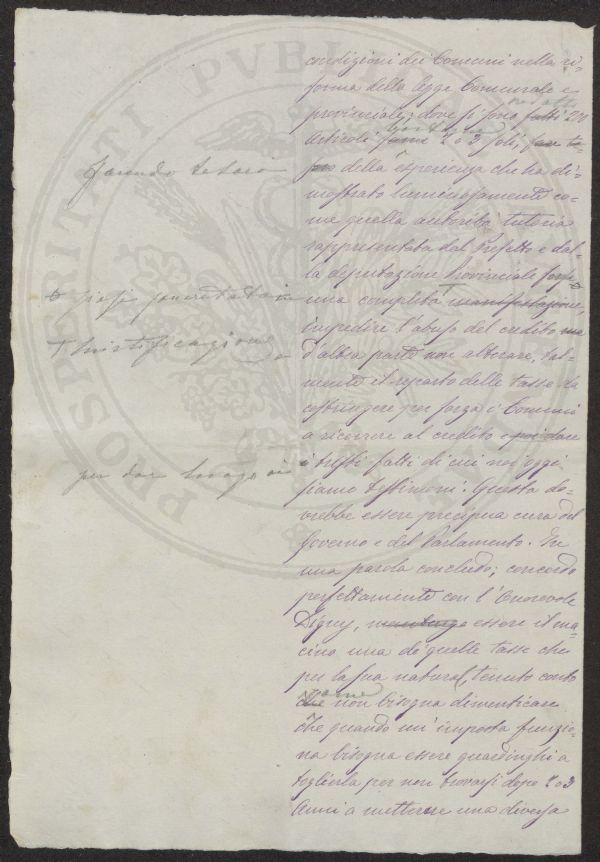 PROSPERITATI PVBLICAE
condizioni dei Comuni nella ri-
forma della legge Comunale e
provinciale; dove si sono fatti 200
articoli 2 o 3 soli,
facendo tesoro
della esperienza che ha di-
mostrato luminosamente co-
me quella autorità tutoria
rappresentata dal Prefetto e dal-
la deputazione Provinciale
una completa manifestazione,
+ mistificazione
impedire l'abuso del credito ma
d'altra parte non alterare, tal-
mente il reparto delle tasse da
costringere per forza i Comuni
a ricorrere al credito e poi dare
per dar luogo ai
i tristi fatti di cui noi oggi
siamo testimoni. Questa do-
vrebbe essere precipua cura del
Governo e del Parlamento. In
una parola concludo; concordo
perfettamente con l'Onorevole
Digny, essere il ma-
cino una di quelle tasse che
per la sua natura, tenuto conto
come
che non bisogna dimenticare
che quando un'imposta funzio-
na bisogna essere guardinghi a
toglierla per non trovarsi dopo 2 o 3
Anni a mettere una diversa